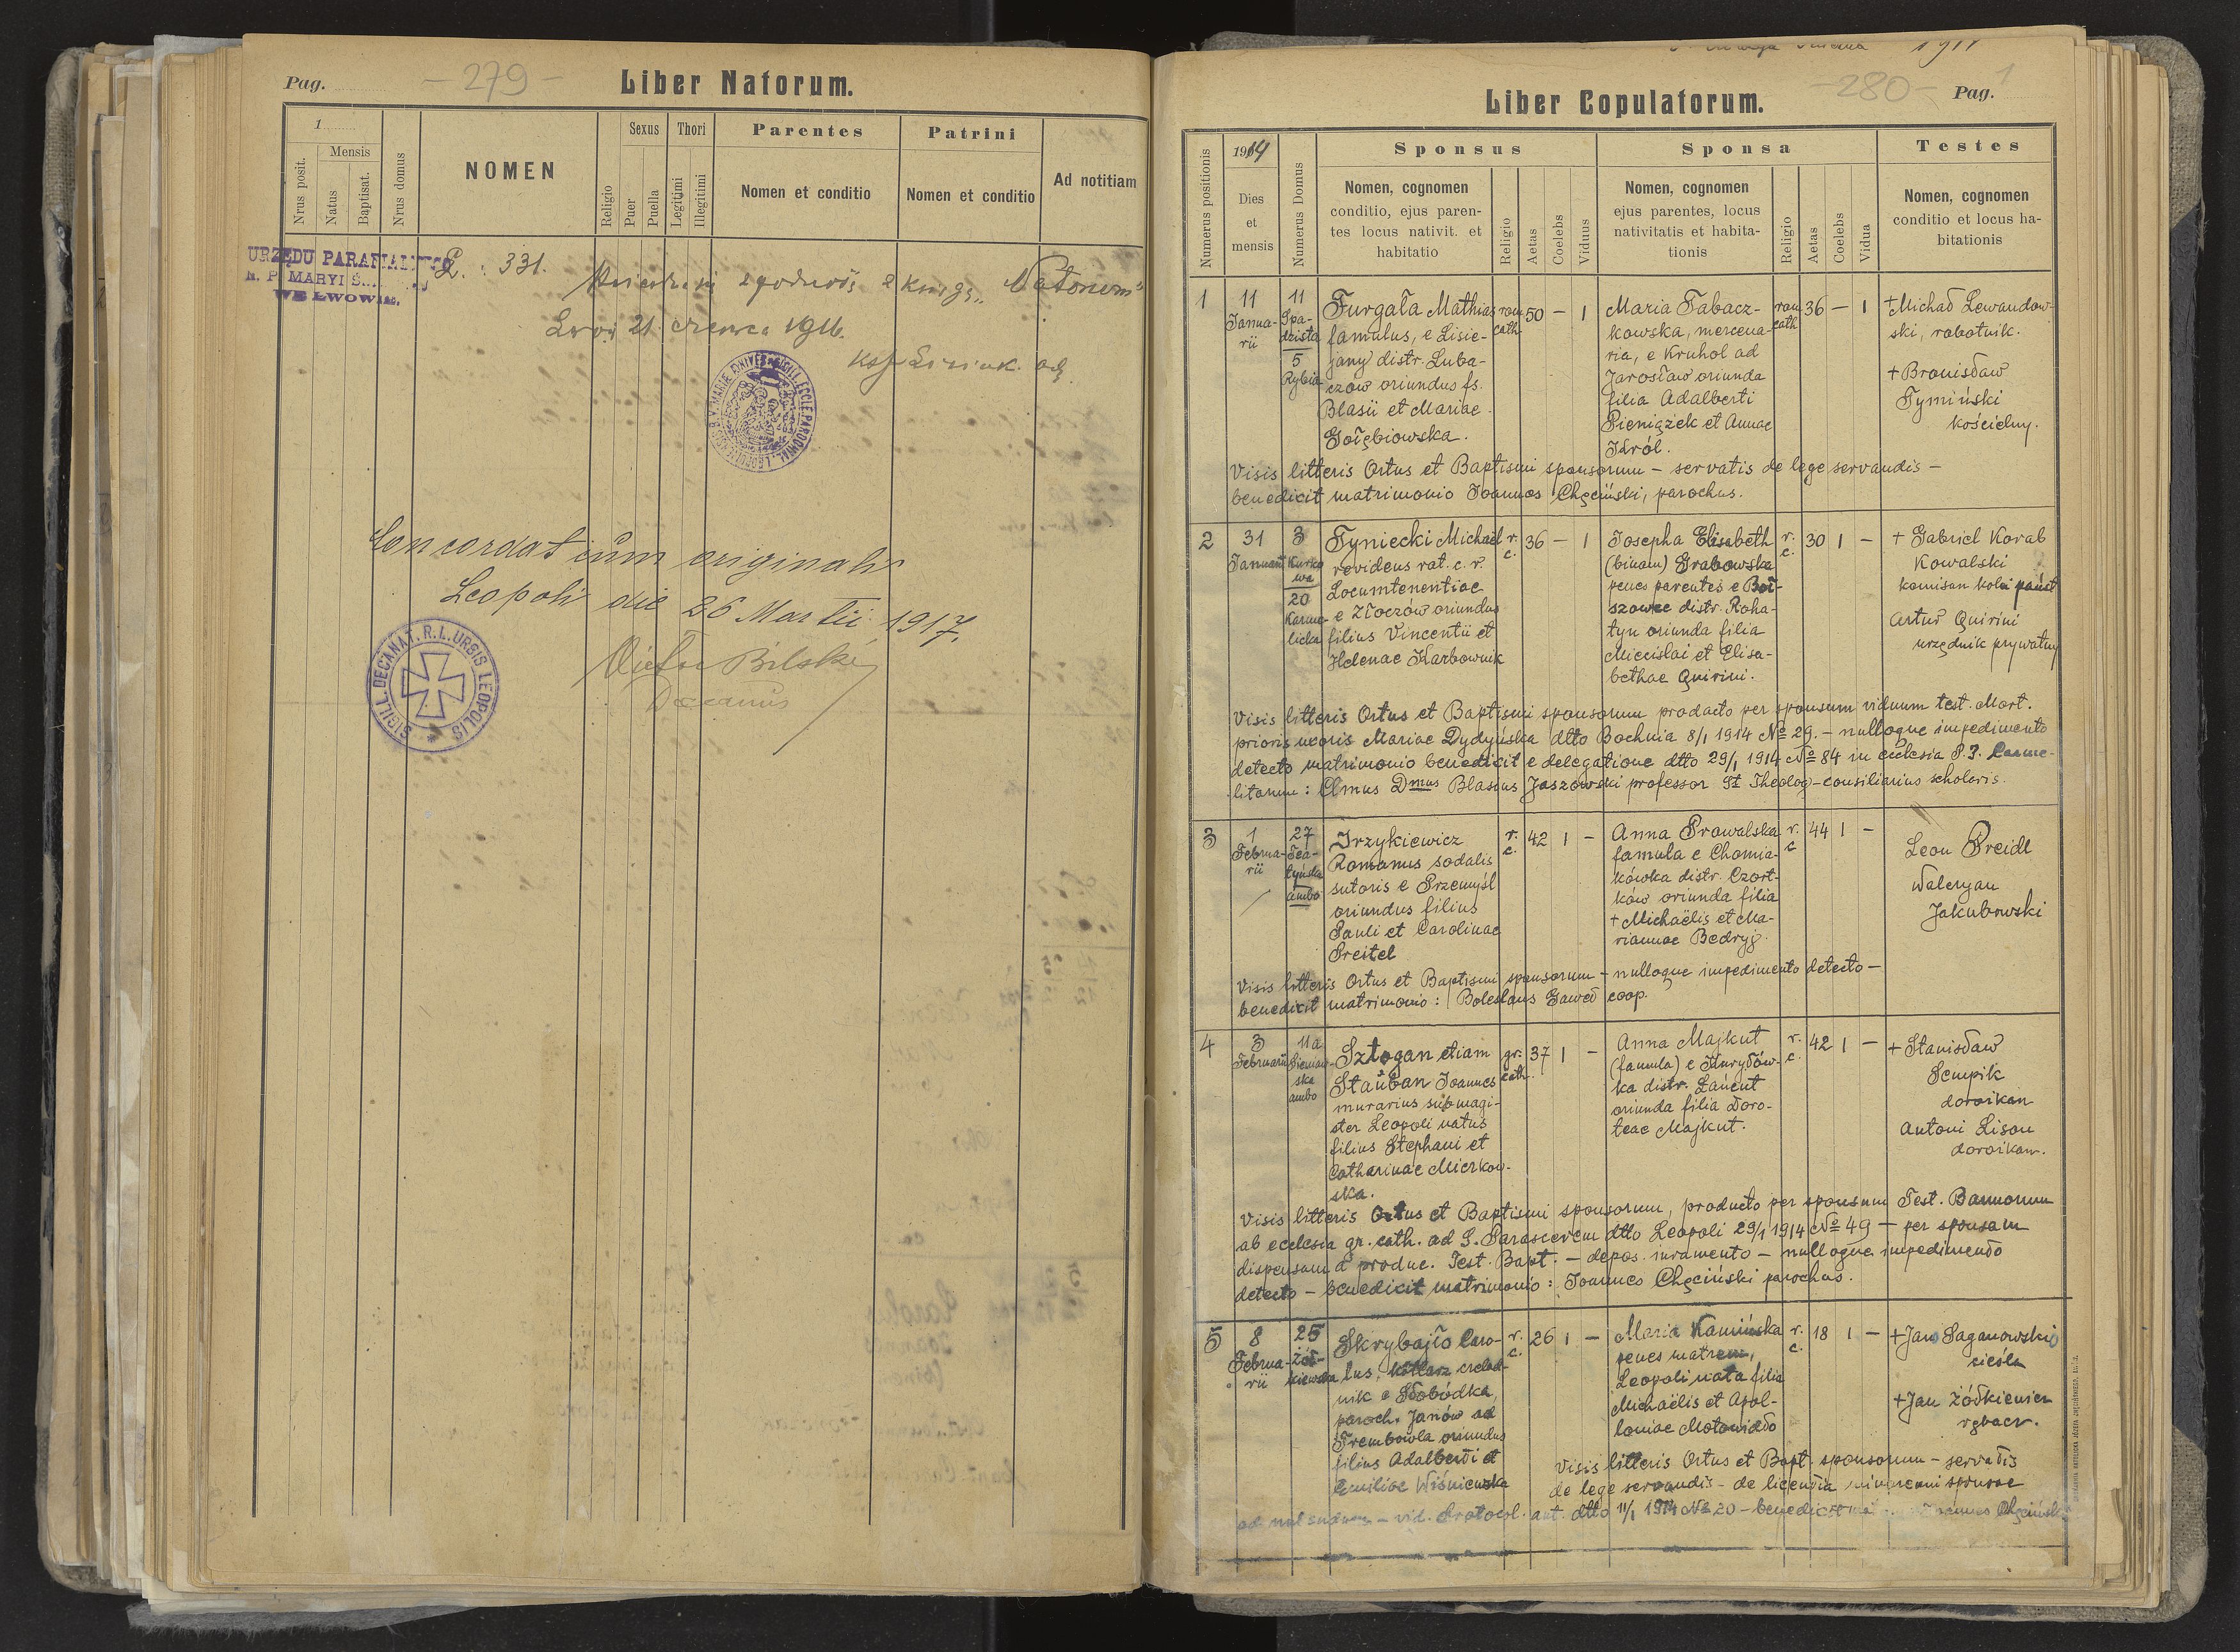 Pag. - 279 - Liber Natorum.
1
Nrus posit.
Mensis
Natus
Baptisat.
Nrus domus
NOMEN
Religio
Sexus
Puer
Puella
Thori
Legitimi
Illegitimi
Parentes
Nomen et conditio
Patrini
Nomen et conditio
Ad notitiam
URZĘDU PARAFIALNEGO
N. P. MARYI Ś...
WE LWOWIE.
L. : 331.
zgodność z księgą „Natorum"
Lwów 21 czerwca 1916.
Concordat cum originali
Leopoli die 26 Martii 1917.
Victor Bilski
Decanus
SIGILL. DECANAT. R. L. URBIS LEOPOLIS
1911
Liber Copulatorum. - 280 - Pag. 1
Numerus positionis
1914
Dies
et
mensis
Numerus Domus
Sponsus
Nomen, cognomen
conditio, ejus paren-
tes locus nativit. et
habitatio
Religio
Aetas
Coelebs
Viduus
Sponsa
Nomen, cognomen
ejus parentes, locus
nativitatis et habita-
tionis
Religio
Aetas
Coelebs
Vidua
Testes
Nomen, cognomen
conditio et locus ha-
bitationis
1
11
Janua-
rii
11
Spa-
dzista
5
Rybia
Furgała Mathias
famulus, e Lisie-
jany distr. Luba-
czów oriundus fs.
Blasii et Mariae
Gołębiowska.
rom
cath
50 — 1
Maria Tabacz-
kowska, mercena-
ria, e Kruhol ad
Jarosław oriunda
filia Adalberti
Pieniążek et Annae
Król.
rom
cath
36 — 1
+ Michał Lewandow-
ski, robotnik.
+ Bronisław
Tymiński
kościelny.
Visis litteris Ortus et Baptismi sponsorum — servatis de lege servandis —
benedicit matrimonio Joannes Chęciński, parochus.
2
31
Januarii
3
Kurko
wa
20
Karme-
licka
Tyniecki Michael
revidens rat. c. r.
Locumtenentiae
e Złoczów oriundus
filius Vincentii et
Helenae Karbownik
r.
c.
36 — 1
Josepha Elisabeth
(binom) Grabowska
penes parentes e Boł-
szowce distr. Roha-
tyn oriunda filia
Miecislai et Elisa-
bethae Quirini.
r.
c.
30 1 —
+ Gabriel Korab
Kowalski
komisarz kolei państ
Artur Quirini
urzędnik prywatny
Visis litteris Ortus et Baptismi sponsorum producto per sponsum viduum test. Mort.
prioris uxoris Mariae Dydyńska dtto Bochnia 8/1 1914 № 29. — nulloque impedimento
detecto matrimonio benedicit e delegatione dtto 29/1 1914 № 84 in ecclesia P. P. Carme-
litarum : Clmus Dmus Blasius Jaszowski professor St Theolog — consiliarius scholaris.
3
1
Februa-
rii
27
Tea-
tyńska
ambo
Irzykiewicz
Romanus sodalis
sutoris e Przemyśl
oriundus filius
Pauli et Carolinae
Preitel
r.
c.
42 1 —
Anna Prowalska
famula e Chomia-
kówka distr. Czort-
ków oriunda filia
+ Michaëlis et Ma-
riannae Bedryj.
r.
c
44 1 —
Leon Preidl
Waleryan
Jakubowski
Visis litteris Ortus et Baptismi sponsorum — nulloque impedimento detecto —
benedicit matrimonio : Boleslaus Gaweł coop.
4
3
Februarii
11a
Sieniaw-
ska
ambo
Sztogan etiam
Stauban Joannes
murarius submagi-
ster Leopoli natus
filius Stephani et
Catharinae Mierkow-
ska.
gr.
cath.
37 1 —
Anna Majkut
(famula) e Kuryłów-
ka distr. Łańcut
oriunda filia Doro-
teae Majkut.
r.
c.
42 1 —
+ Stanisław
Sempik
dorożkarz
Antoni Lison
dorożkarz.
Visis litteris Ortus et Baptismi sponsorum, producto per sponsum Test. Bannorum
ab ecclesia gr. cath. ad S. Parascevem dtto Leopoli 29/1 1914 № 49 — per sponsam
dispensam a produc. Test. Bapt. — depos. iuramento — nulloque impedimento
detecto — benedicit matrimonio : Joannes Chęciński parochus.
5
8
Februa-
rii
25
Żół-
kiewska
Skrybajło Caro-
lus, kotlarz czelad-
nik e Słobódka,
paroch. Janów ad
Trembowla oriundus
filius Adalberti et
Emiliae Wiśniewska
r.
c.
26 1 —
Maria Kamińska
penes matrem,
Leopoli nata filia
Michaëlis et Apol-
loniae Motowidło
r.
c.
18 1 —
+ Jan Saganowski
cieśla
+ Jan Żółkiewicz
rębacz.
Visis litteris Ortus et Bapt. sponsorum — servatis
de lege servandis — de licentia minorenni sponsae
ad nubendum — vid. Protocol. ant. dtto 11/1 1914 № 20 — benedicit Joannes Chęciński